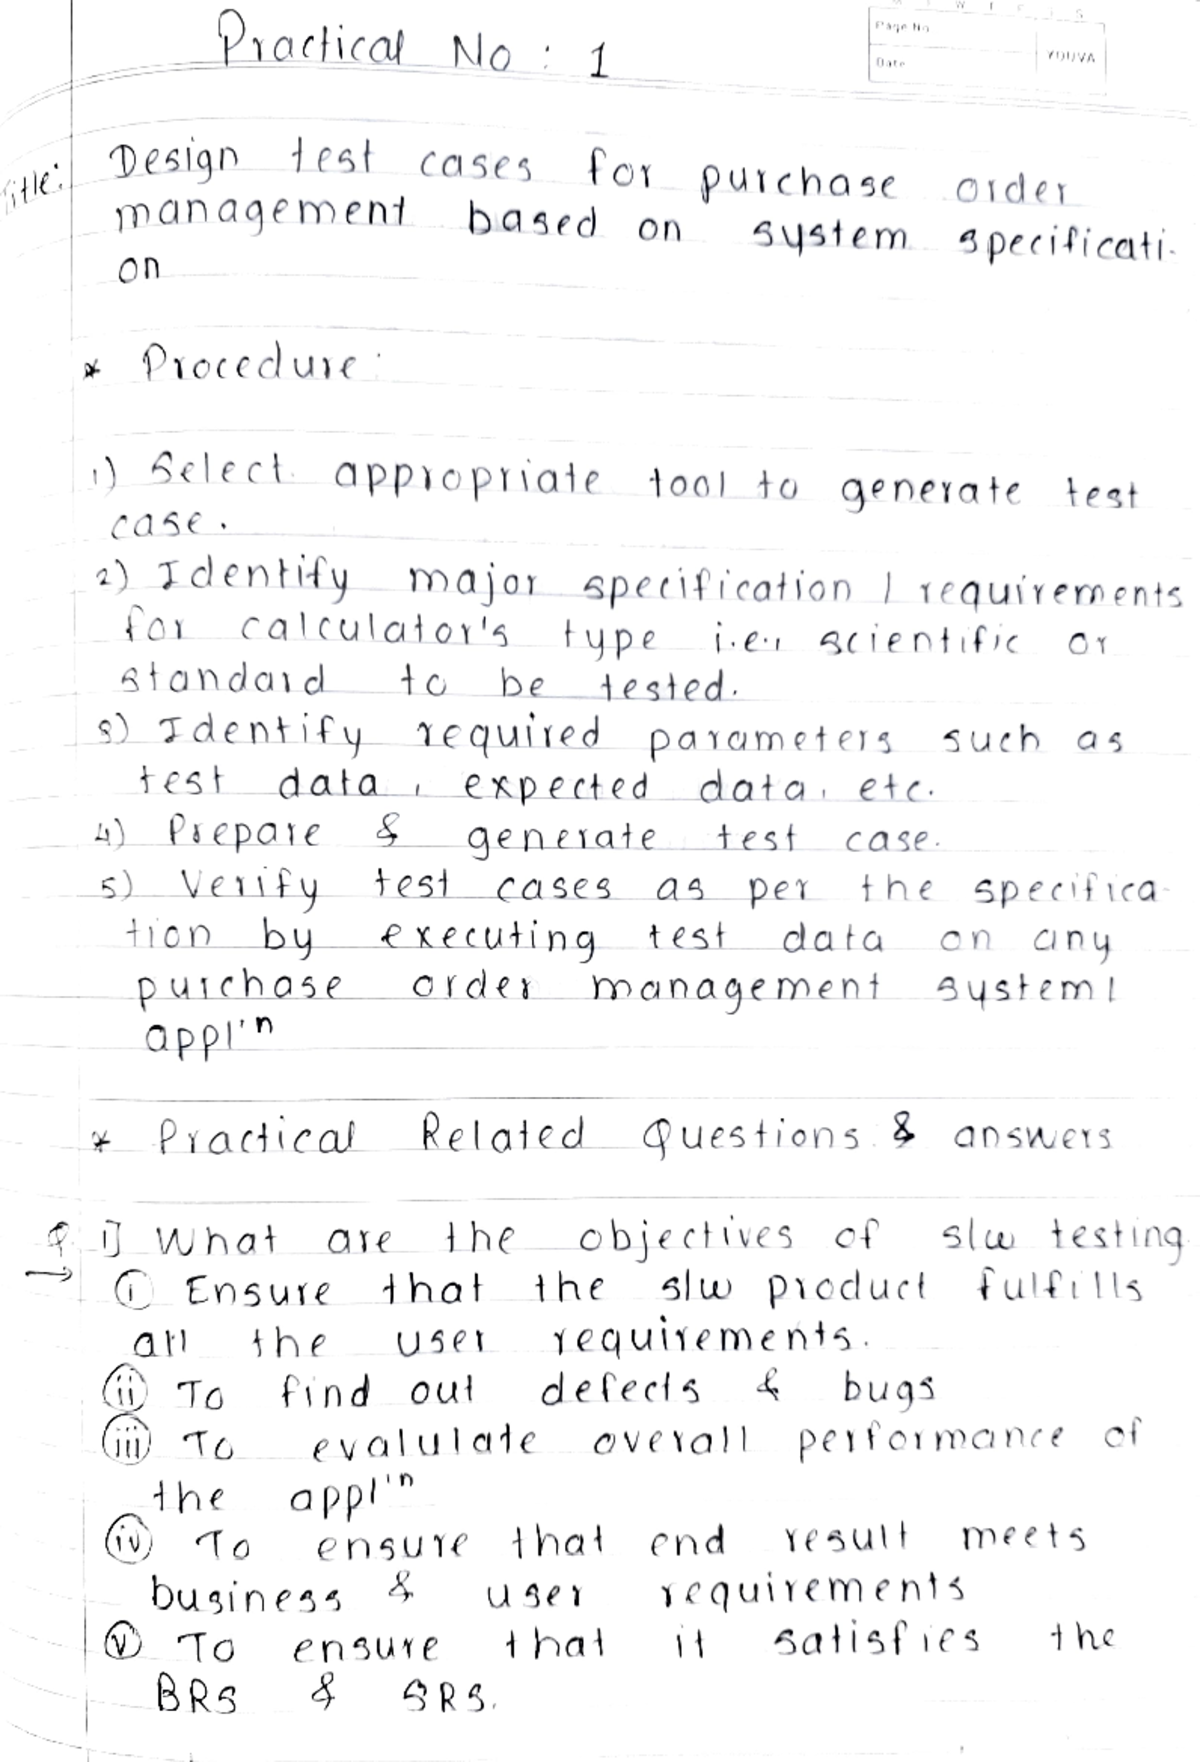 Practical No : 1
Page No
Date
YOUVA
Title:
Design test cases for purchase order
management based on system specificati-
on
* Procedure:
1) Select appropriate tool to generate test
case.
2) Identify major specification / requirements
for calculator's type i.e., scientific or
standard to be tested.
3) Identify required parameters such as
test data, expected data, etc.
4) Prepare & generate test case.
5) Verify test cases as per the specifica-
tion by executing test data on any
purchase order management system/
appl'n
* Practical Related Questions & answers
Q. 1] What are the objectives of s/w testing.
→ (i) Ensure that the s/w product fulfills
all the user requirements.
(ii) To find out defects & bugs
(iii) To evalulate overall performance of
the appl'n
(iv) To ensure that end result meets
business & user requirements
(v) To ensure that it satisfies the
BRS & SRS.